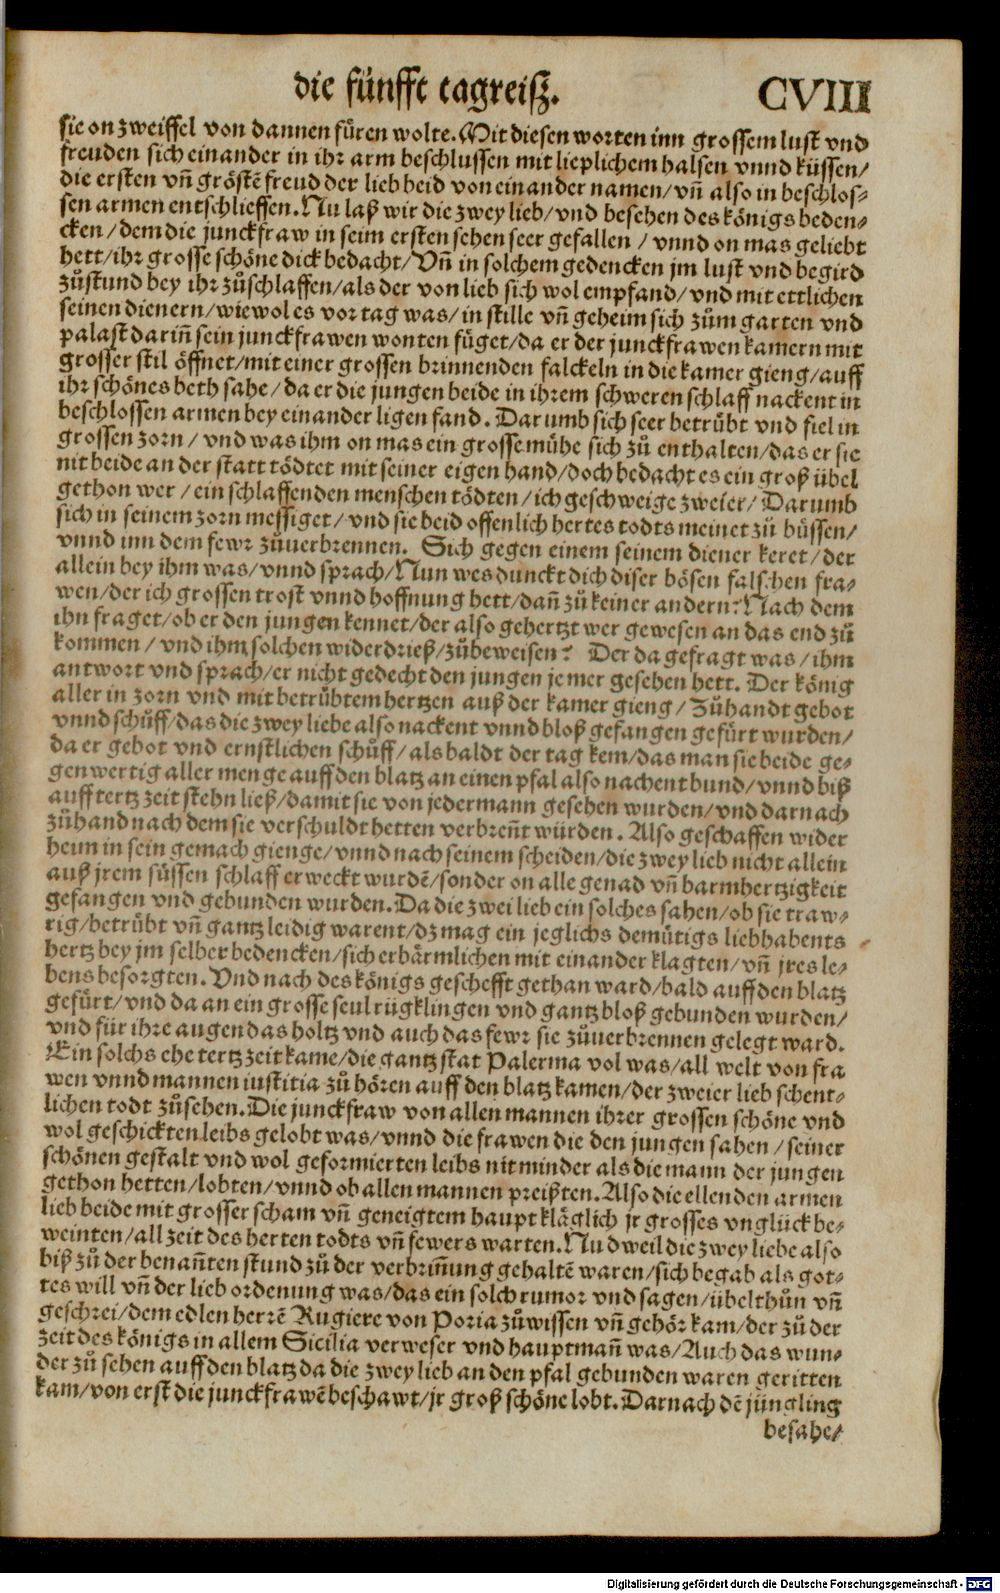 die fünfft tagreisz.
CVIII
sie on zweiffel von dannen füren wolte. Mit diesen worten inn grossem lust vnd
freuden sich einander in ihr arm beschlussen mit lieplichem halsen vnnd küssen/
die ersten vñ gröstẽ freud der lieb beid von einander namen/ vñ also in beschlos-
sen armen entschlieffen. Nu laß wir die zwey lieb/ vnd besehen des königs beden-
cken/ dem die junckfraw in seim ersten sehen seer gefallen / vnnd on mas geliebt
hett/ ihr grosse schöne dick bedacht/ Vñ in solchem gedencken jm lust vnd begird
zůstund bey ihr zůschlaffen/ als der von lieb sich wol empfand/ vnd mit ettlichen
seinen dienern/ wiewol es vor tag was/ in stille vñ geheim sich zům garten vnd
palast dariñ sein junckfrawen wonten füget/ da er der junckfrawen kamern mit
grosser stil öffnet/ mit einer grossen brinnenden falckeln in die kamer gieng/ auff
ihr schönes beth sahe/ da er die jungen beide in ihrem schweren schlaff nackent in
beschlossen armen bey einander ligen fand. Darumb sich seer betrůbt vnd fiel in
grossen zorn/ vnd was ihm on mas ein grosse mühe sich zů enthalten/ das er sie
nit beide an der statt tödtet mit seiner eigen hand/ doch bedacht es ein groß übel
gethon wer/ ein schlaffenden menschen tödten/ ich geschweige zweier/ Darumb
sich in seinem zorn messiget/ vnd sie beid offenlich hertes todts meinet zů büssen/
vnnd inn dem fewr zůuerbrennen. Sich gegen einem seinem diener keret/ der
allein bey ihm was/ vnnd sprach/ Nun wes dunckt dich diser bösen falschen fra-
wen/ der ich grossen trost vnnd hoffnung hett/ dañ zů keiner andern? Nach dem
ihn fraget/ ob er den jungen kennet/ der also gehertzt wer gewesen an das end zů
kommen / vnd ihm solchen widerdrieß/ zůbeweisen? Der da gefragt was/ ihm
antwort vnd sprach/ er nicht gedecht den jungen je mer gesehen hett. Der könig
aller in zorn vnd mit betrübtem hertzen auß der kamer gieng/ Zůhandt gebot
vnnd schůff/ das die zwey liebe also nackent vnnd bloß gefangen gefürt wurden/
da er gebot vnd ernstlichen schůff/ als baldt der tag kem/ das man sie beide ge-
genwertig aller menge auff den blatz an einen pfal also nachent bund/ vnnd biß
auff tertz zeit stehn ließ/ damit sie von jedermann gesehen wurden/ vnd darnach
zůhand nach dem sie verschuldt hetten verbreñt würden. Also geschaffen wider
heim in sein gemach gienge/ vnnd nach seinem scheiden/ die zwey lieb nicht allein
auß jrem süssen schlaff erweckt wurdẽ/ sonder on alle genad vñ barmhertzigkeit
gefangen vnd gebunden wurden. Da die zwei lieb ein solches sahen/ ob sie traw-
rig/ betrübt vñ gantz leidig warent/ dz mag ein jeglichs demütigs liebhabents
hertz bey jm selber bedencken/ sich erbärmlichen mit einander klagten/ vñ jres le-
bens besorgten. Vnd nach des königs geschefft gethan ward/ bald auff den blatz
gefürt/ vnd da an ein grosse seul rügklingen vnd gantz bloß gebunden wurden/
vnd für ihre augen das holtz vnd auch das fewr sie zůuerbrennen gelegt ward.
Ein solchs ehe tertz zeit kame/ die gantz stat Palerma vol was/ all welt von fra
wen vnnd mannen iustitia zů hören auff den blatz kamen/ der zweier lieb schent-
lichen todt zůsehen. Die junckfraw von allen mannen ihrer grossen schöne vnd
wol geschickten leibs gelobt was/ vnnd die frawen die den jungen sahen/ seiner
schönen gestalt vnd wol geformierten leibs nit minder als die mann der jungen
gethon hetten/ lobten/ vnnd ob allen mannen preißten. Also die ellenden armen
lieb beide mit grosser scham vñ geneigtem haupt kläglich jr grosses vnglück be-
weinten/ all zeit des herten todts vñ fewers warten. Nu dweil die zwey liebe also
biß zů der benañten stund zů der verbriñung gehaltẽ waren/ sich begab als got-
tes will vñ der lieb ordenung was/ das ein solch rumor vnd sagen/ übelthůn vñ
geschrei/ dem edlen herrẽ Rugiere von Poria zůwissen vñ gehör kam/ der zů der
zeit des königs in allem Sicilia verweser vnd hauptmañ was/ Auch das wun-
der zů sehen auff den blatz da die zwey lieb an den pfal gebunden waren geritten
kam/ von erst die junckfrawẽ beschawt/ jr groß schöne lobt. Darnach dẽ jüngling
besahe/
Digitalisierung gefördert durch die Deutsche Forschungsgemeinschaft - DFG